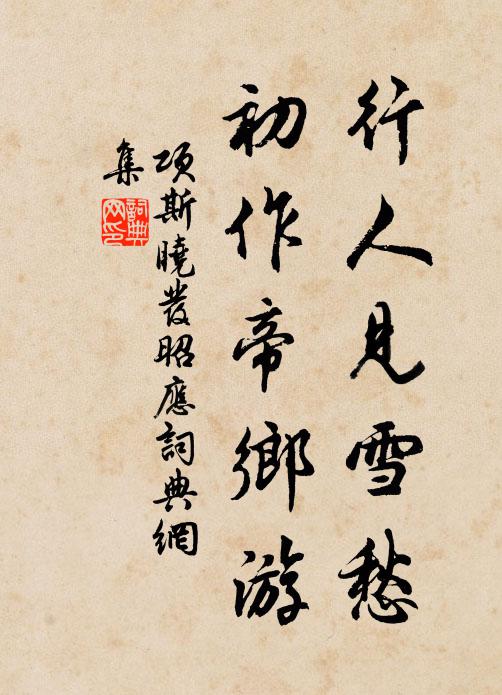 行人見雪愁
初作帝鄉游
項斯曉發昭應詞典網
集
詞典網印